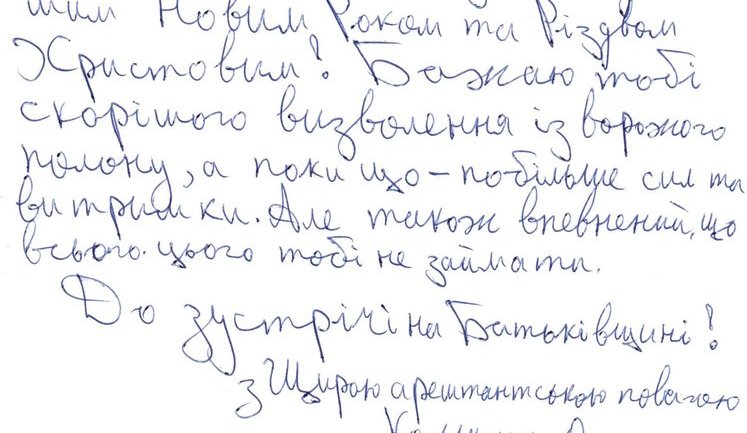 шим Новим Роком та Різдвом
Христовим! Бажаю тобі
скорішого визволення із ворожого
полону, а поки що – побільше сил та
витримки. Але також впевнений, що
всього цього тобі не займати.
До зустрічі на Батьківщині!
з Щирою арештантською повагою